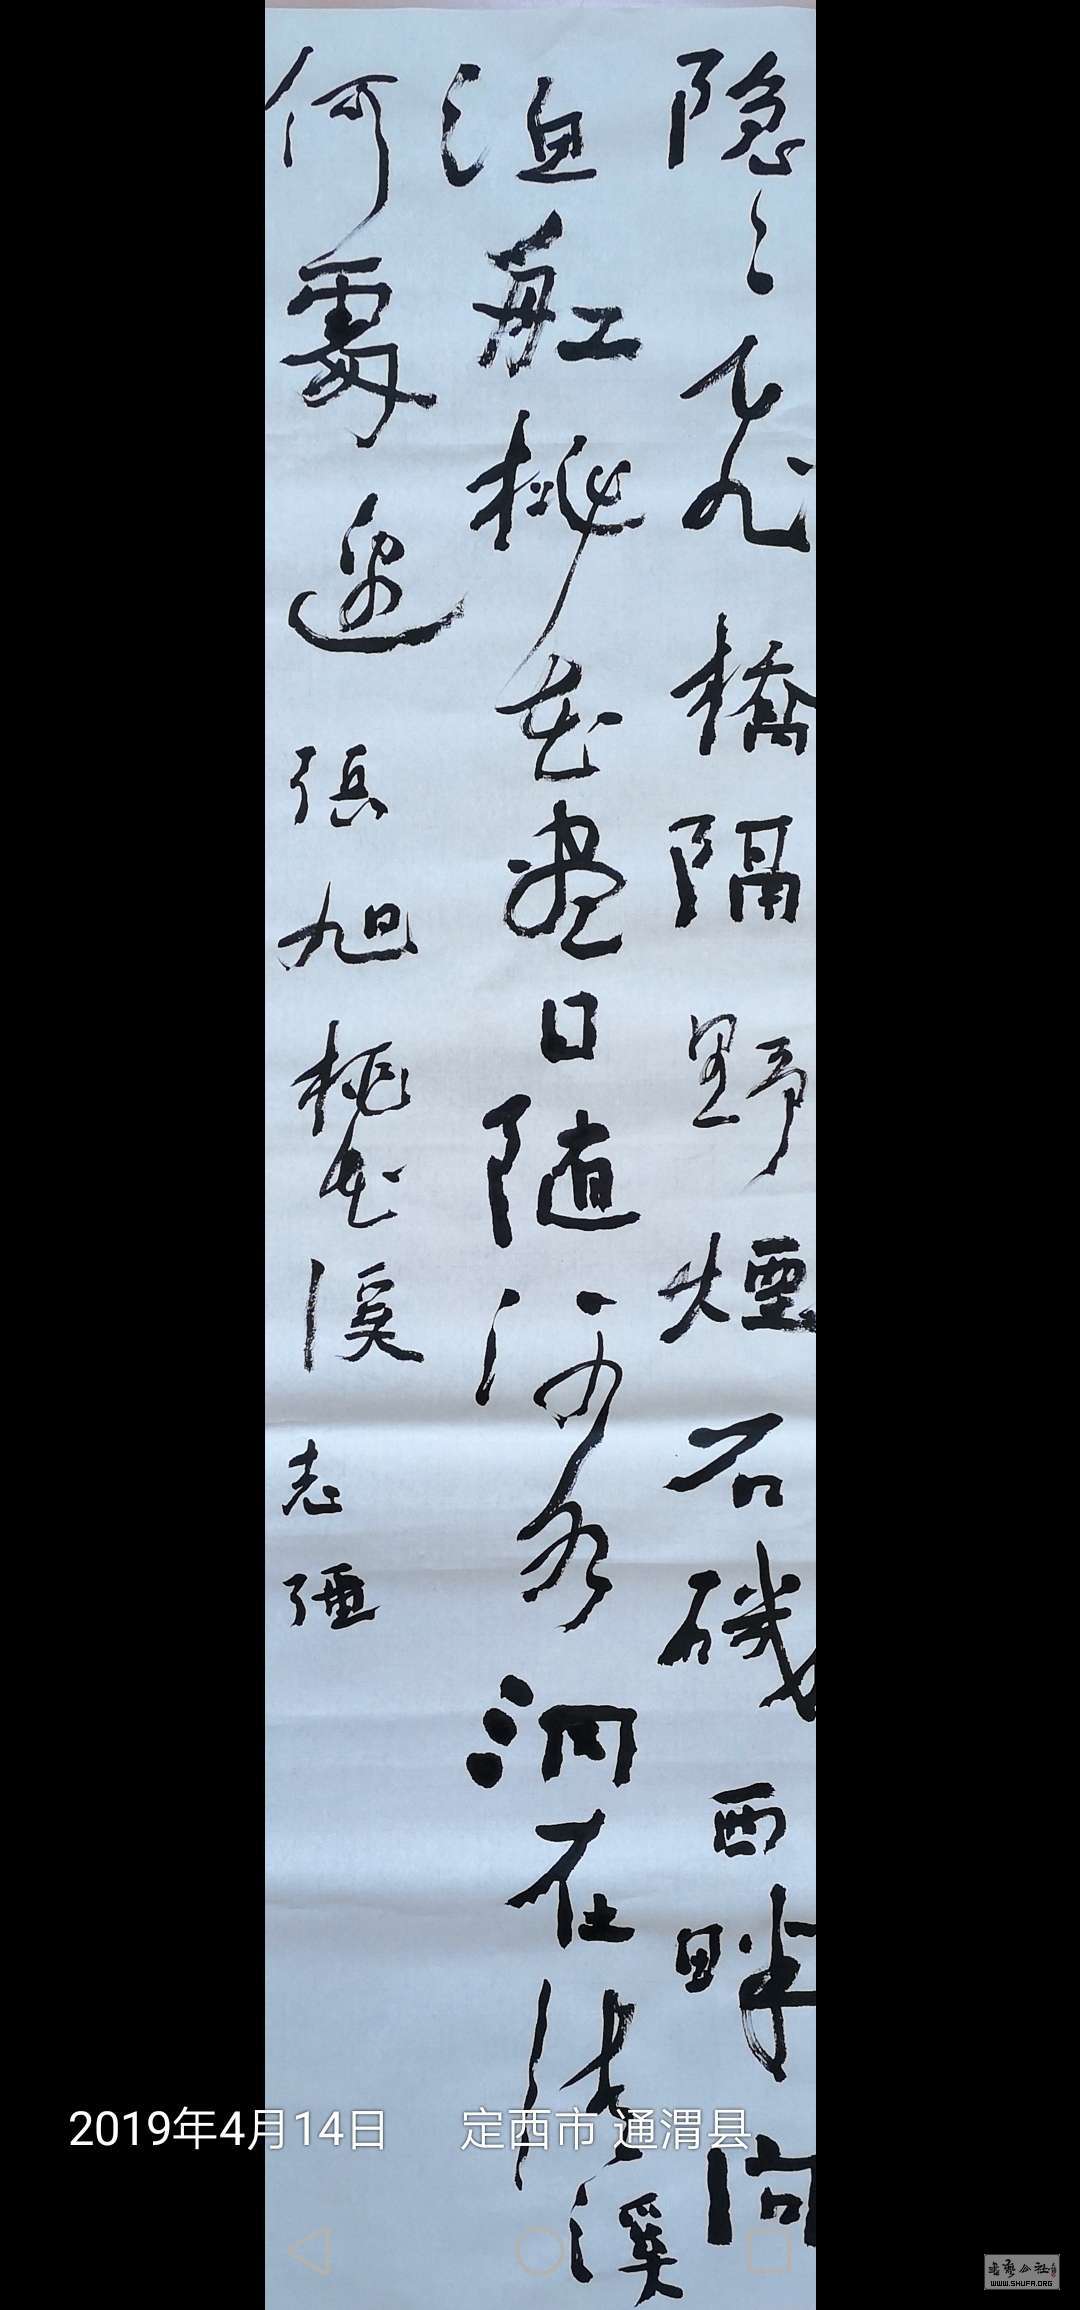 隐々飞橋隔野煙石磯西畔问
渔舡桃花尽日随流水洞在清溪
何處边 張旭桃花溪 志彊
2019年4月14日 定西市 通渭县
书艺公社
WWW.SHUFA.ORG